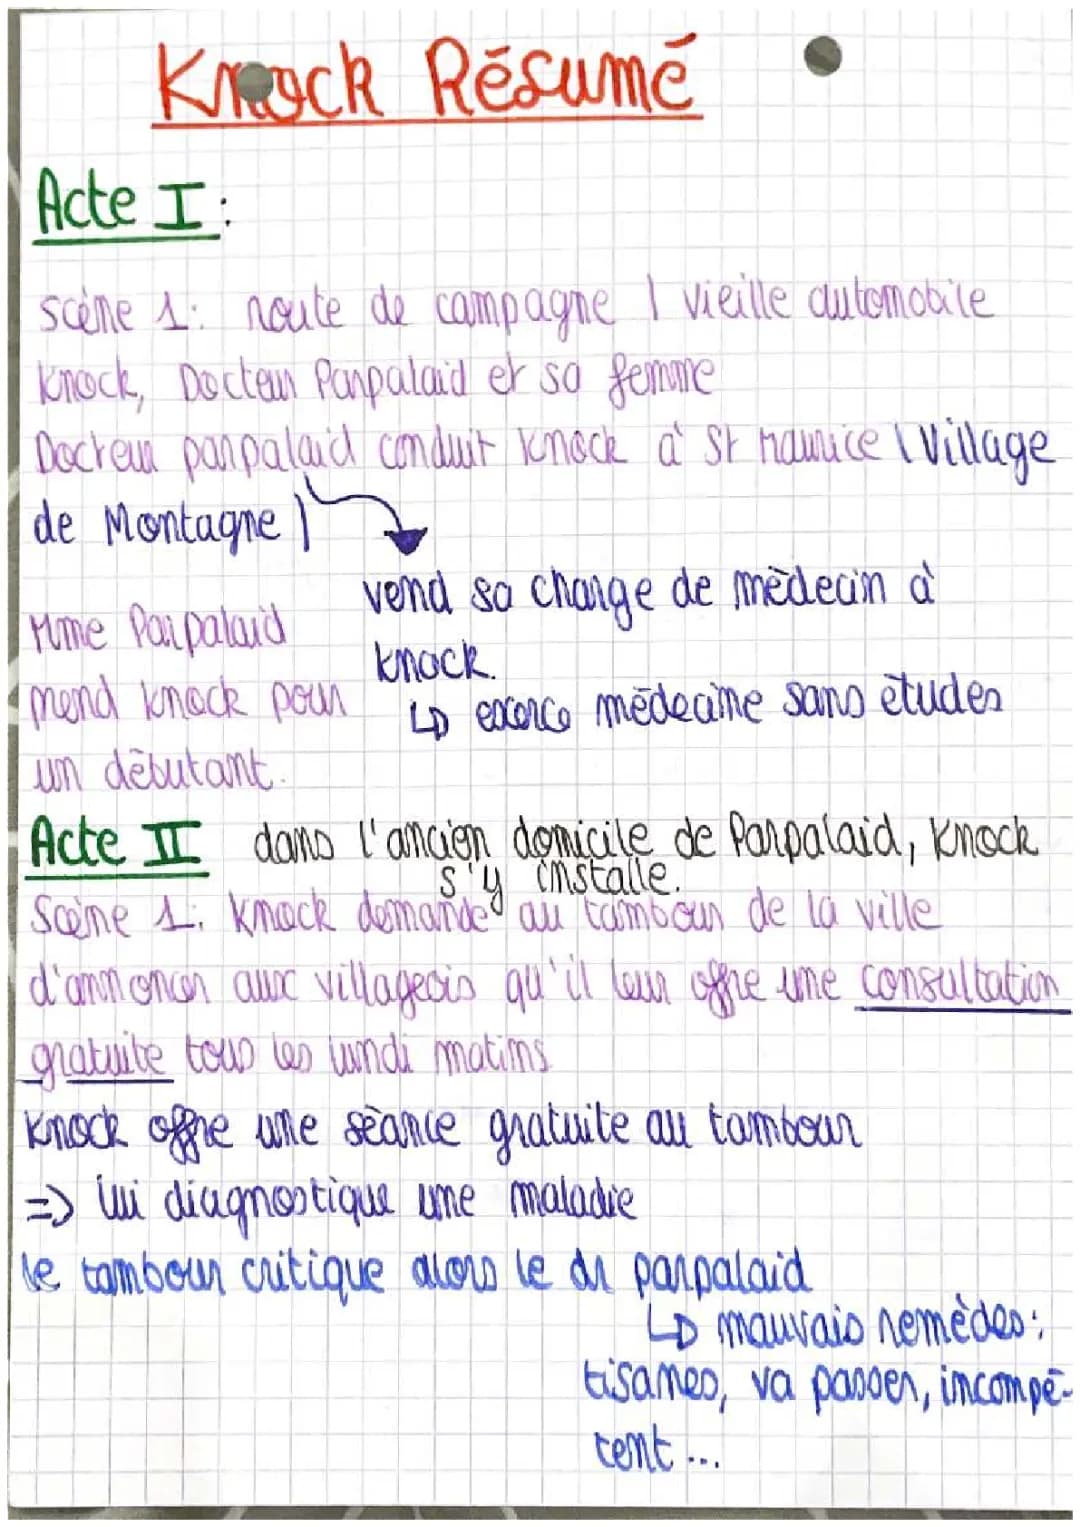 Knock Résumé
Acte I :
scène 1: route de campagne / vieille automobile
Knock, Docteur Parpalaid et sa femme
Docteur parpalaid conduit Knock à St Maurice (Village
de Montagne)
vend sa charge de mèdecin à
knock.
↳ exerce médecine sans études
Mme Parpalaid
prend knock pour
un débutant.
Acte II dans l'ancien domicile de Parpalaid, Knock
s'y installe.
Scène 1: Knock demande au tambour de la ville
d'annoncer aux villageois qu'il leur offre une consultation
gratuite tous les lundi matins
Knock offre une sèance gratuite au tambour
=> lui diagnostique une maladie
le tambour critique alors le dr parpalaid
↳ mauvais remèdes:
tisanes, va passer, incompé-
tent ...